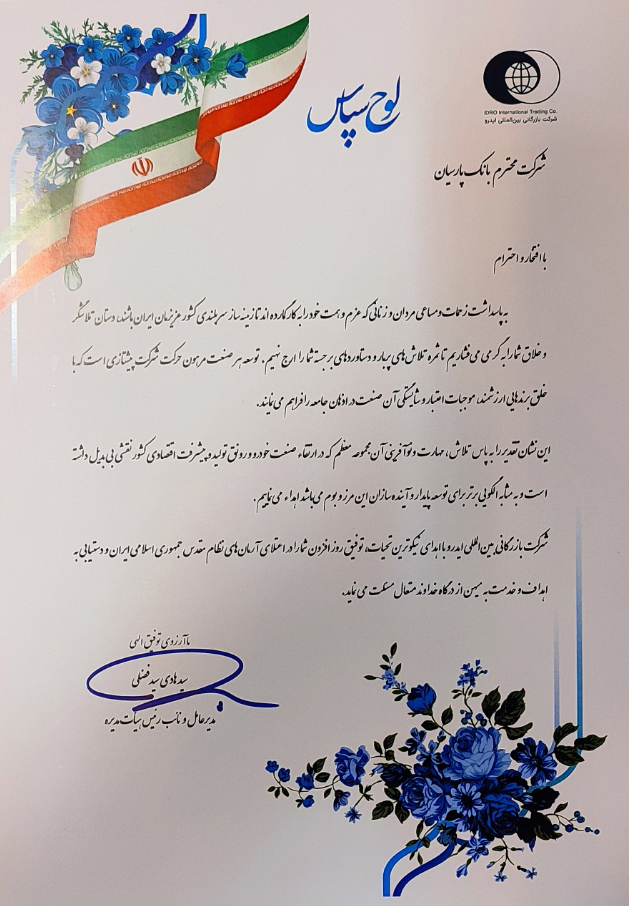 لوح سپاس
IDRO International Trading Co.
شرکت بازرگانی بین‌المللی ایدرو
شرکت محترم بانک پارسیان
با افتخار و احترام
به پاسداشت زحمات و مساعی مردان و زنانی که عزم و همت خود را به کار گمارده اند تا زمینه ساز سربلندی کشور عزیزمان ایران باشند، دستان تلاشگر
و خلاق شما را به گرمی می‌فشاریم تا ثمره تلاش‌های پربار و دستاوردهای برجسته شما را ارج نهیم. توسعه هر صنعت مرهون حرکت شرکت پیشتازی است که با
خلق برندهایی ارزشمند، موجبات اعتبار و شایستگی آن صنعت در اذهان جامعه را فراهم می‌نمایند.
این نشان تقدیر را به پاس تلاش، مهارت و نوآفرینی آن مجموعه معظم که در ارتقاء صنعت خودرو و رونق تولید و پیشرفت اقتصادی کشور نقشی بی بدیل داشته
است و به مثابه الگویی برتر برای توسعه پایدار و آینده سازان این مرز و بوم می‌باشد اهداء می‌نماییم.
شرکت بازرگانی بین المللی ایدرو با اهدای نیکوترین تحیات، توفیق روز افزون شما را در اعتلای آرمان‌های نظام مقدس جمهوری اسلامی ایران و دستیابی به
اهداف و خدمت به میهن از درگاه خداوند متعال مسئلت می نماید.
با آرزوی توفیق الهی
سید هادی سید فضلی
مدیرعامل و نائب رئیس هیأت مدیره